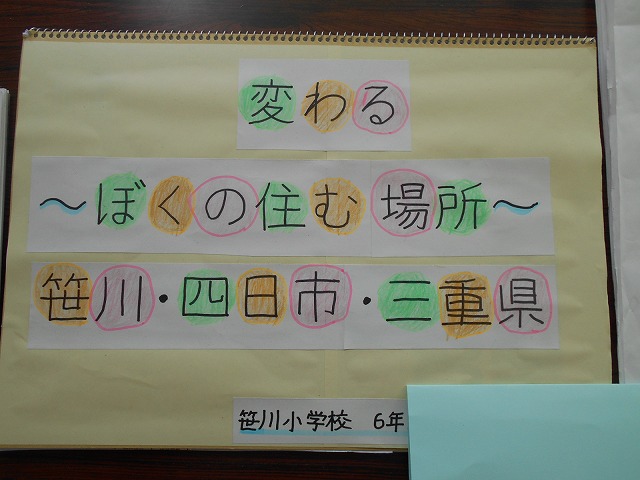 変わる
～ぼくの住む場所～
笹川・四日市・三重県
笹川小学校 6年